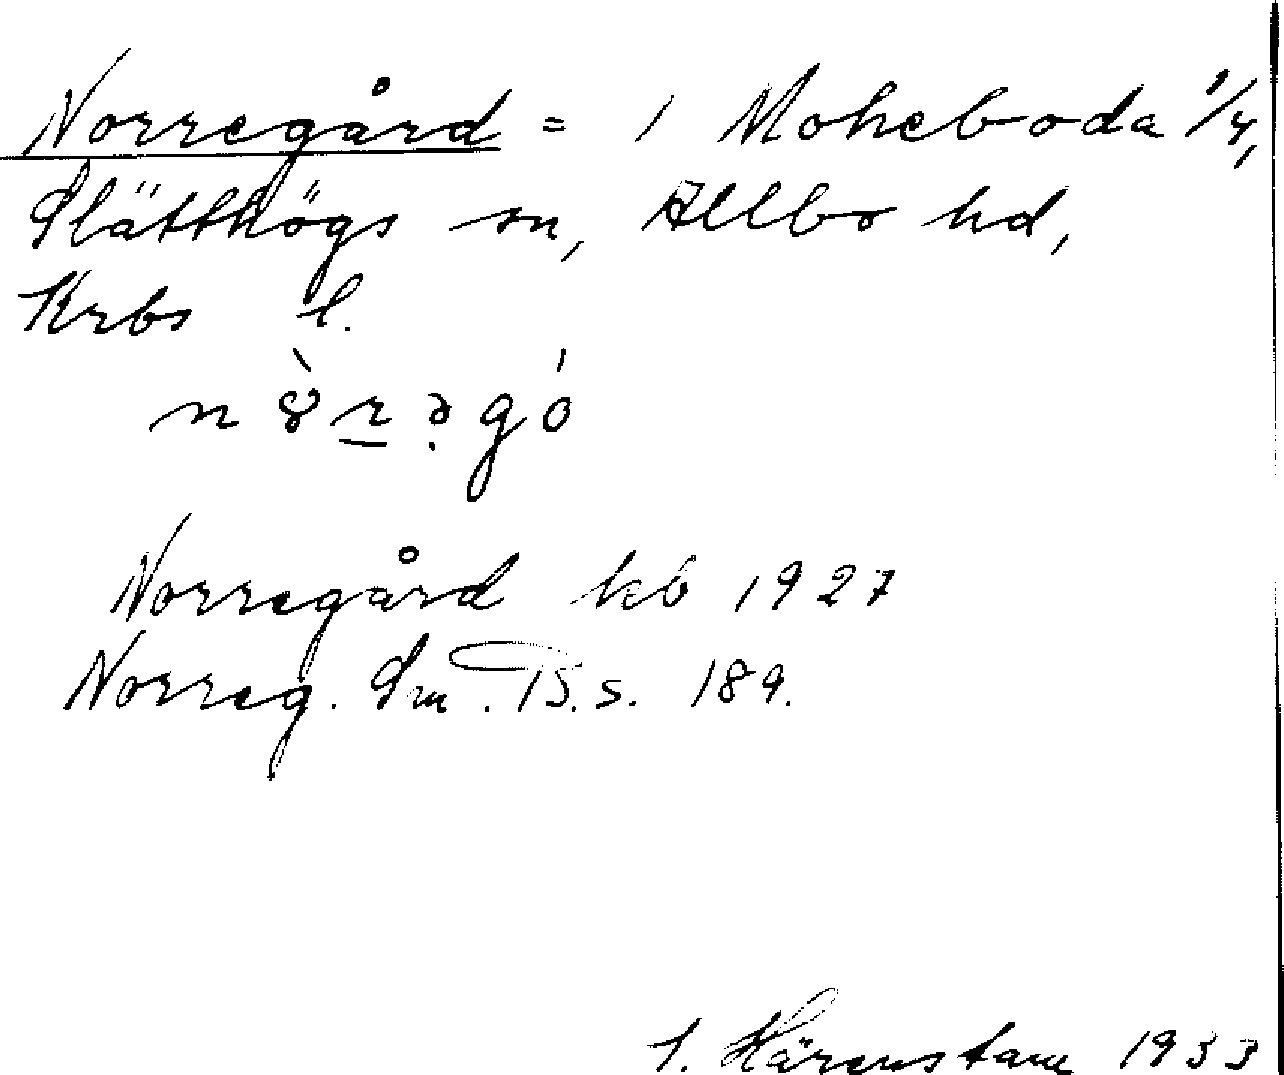 Norregård = 1 Moheboda 1/4,
Slätthögs sn, Allbo hd,
Krbs l.
n ò̈ r ə g ó
Norregård kb 1927
Norreg. Sm. B. s. 189.
S. Härenstam 1933